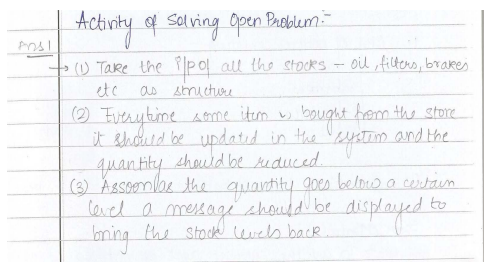 Activity of Solving Open Problem:-
Ans1
→ (1) Take the i/p of all the stocks - oil, filters, brakes
etc as structure
(2) Everytime some item is bought from the store
it should be updated in the system and the
quantity should be reduced.
(3) Assoon as the quantity goes below a certain
level a message should be displayed to
bring the stock levels back.